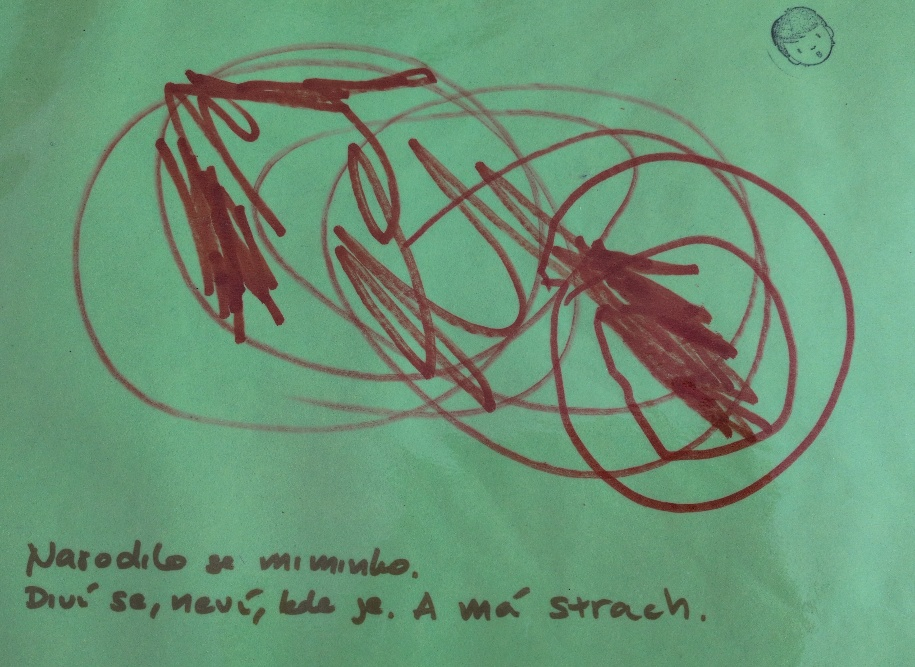 Narodilo se miminko.
Diví se, neví, kde je. A má strach.